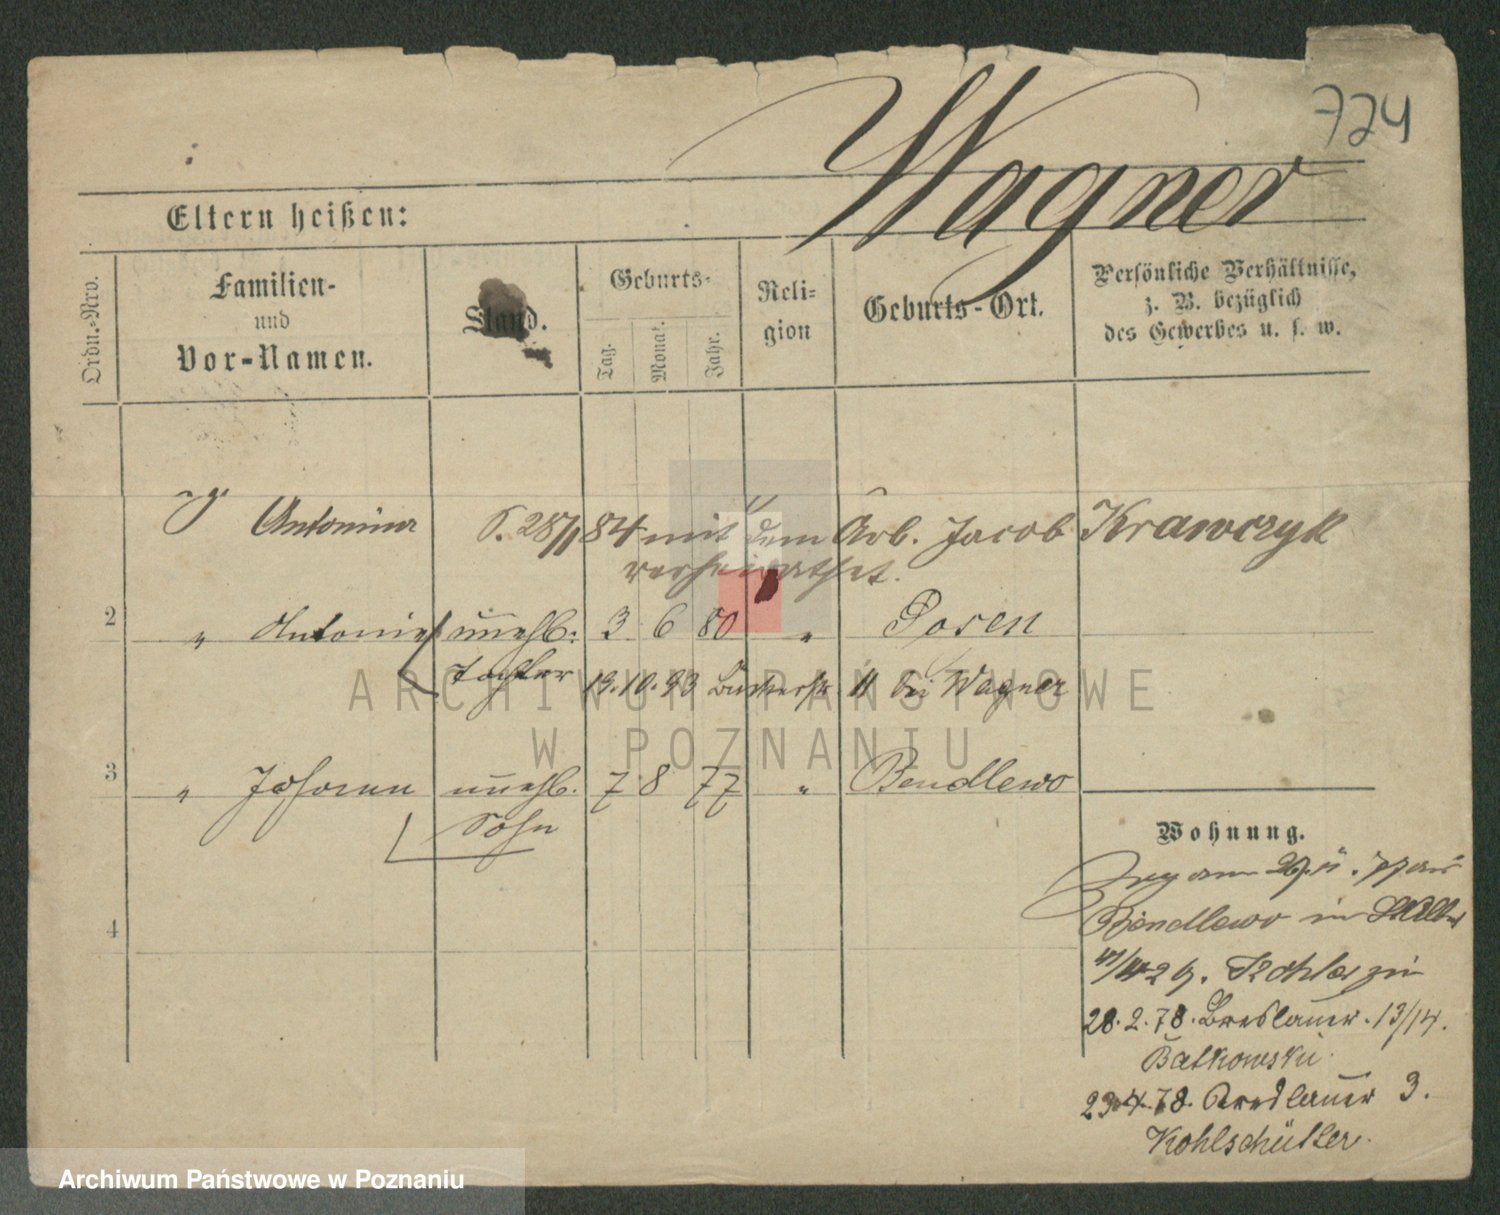 724
Wagner
Eltern heißen:
Ordn.-Nro.
Familien-
und
Vor-Namen.
Stand.
Geburts-
Tag.
Monat.
Jahr.
Reli-
gion
Geburts-Ort.
Persönliche Verhältnisse,
z. B. bezüglich
des Gewerbes u. s. w.
Antonina S. 28/11 84 mit dem Arb. Jacob Krawczyk
verheirathet.
2 " Antonie unehl. 3 6 80 " Posen
Tochter 19.10.93 11 bei Wagner
3 " Johann unehl. 7 8 77 " Bendlewo
Sohn
4
Wohnung.
Bendlewo in
28.2.78. Breslauer. 13/14.
Batkowski.
23.4.78. 3.
Kohlschütter.
ARCHIWUM PAŃSTWOWE
W POZNANIU
Archiwum Państwowe w Poznaniu